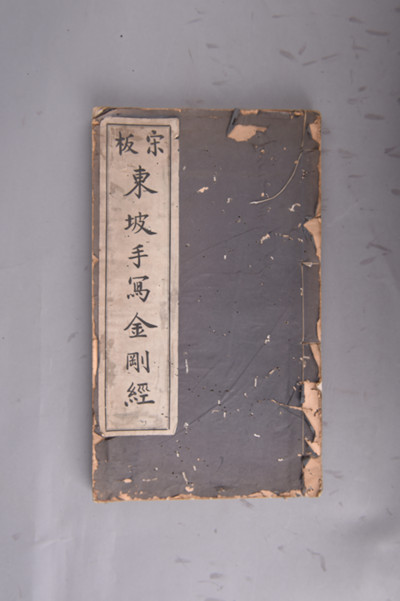 宋板
東坡手寫金剛經